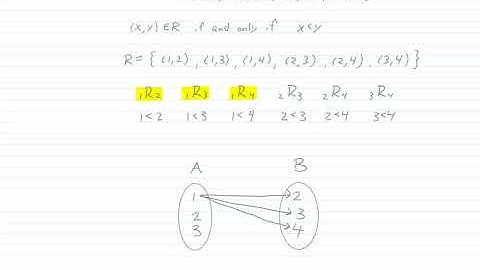 (x,y) ∈ R if and only if x<y
R = { (1,2), (1,3), (1,4), (2,3), (2,4), (3,4) }
1R2 1R3 1R4 2R3 2R4 3R4
1<2 1<3 1<4 2<3 2<4 3<4
A B
1 2
2 3
3 4